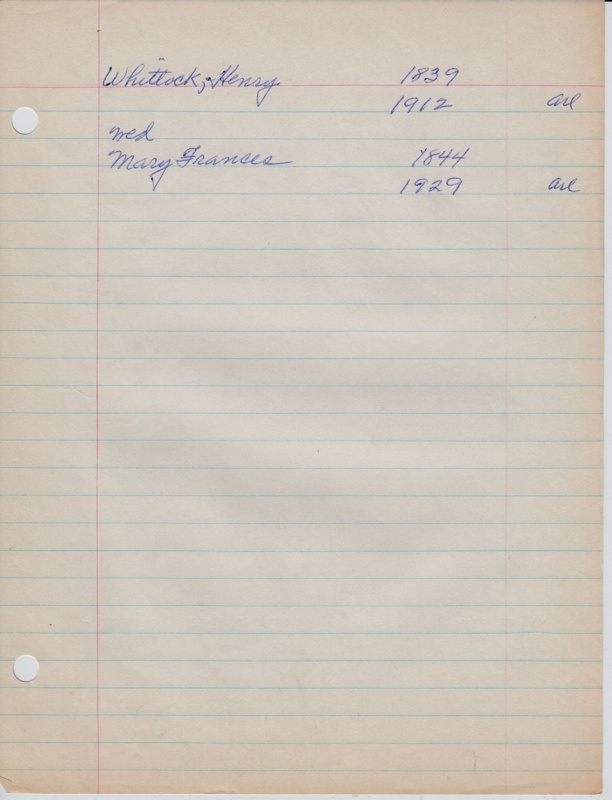 Whitlock, Henry 1839
1912 ave
med
Mary Frances 1844
1929 ave